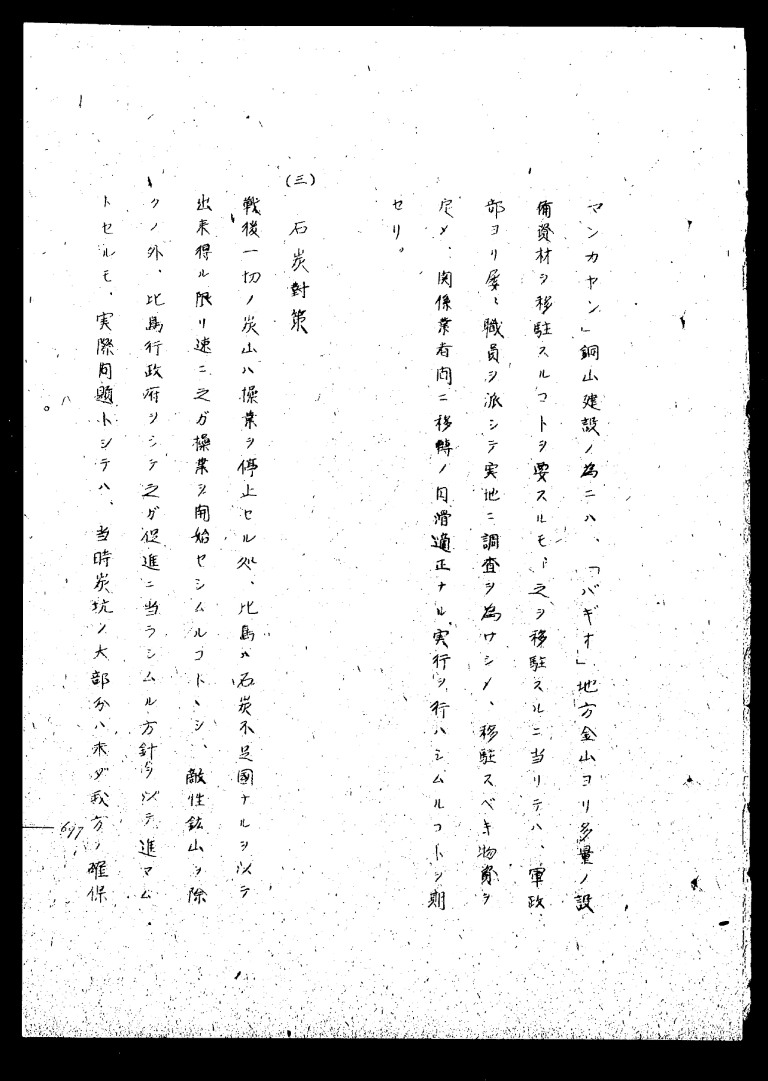 マンカヤン」銅山建設ノ為ニハ、「バギオ」地方金山ヨリ多量ノ設
備資材ヲ移駐スルコトヲ要スルモ之ヲ移駐スルニ当リテハ、軍政
部ヨリ屡々職員ヲ派シテ実地ニ調査ヲ為サシメ、移駐スベキ物資ヲ
定メ、関係業者間ニ移轉ノ円滑適正ナル実行ヲ行ハシムルコトヲ期
セリ。
(三) 石炭對策
戦後一切ノ炭山ハ操業ヲ停止セル処、比島ハ石炭不足國ナルヲ以テ
出来得ル限リ速ニ之ガ操業ヲ開始セシムルコトヽシ、敵性鉱山ヲ除
クノ外、比島行政府ヲシテ之ガ促進ニ当ラシムル方針ヲ以テ進マム
トセルモ、実際問題トシテハ、当時炭坑ノ大部分ハ未ダ我方ノ確保
697